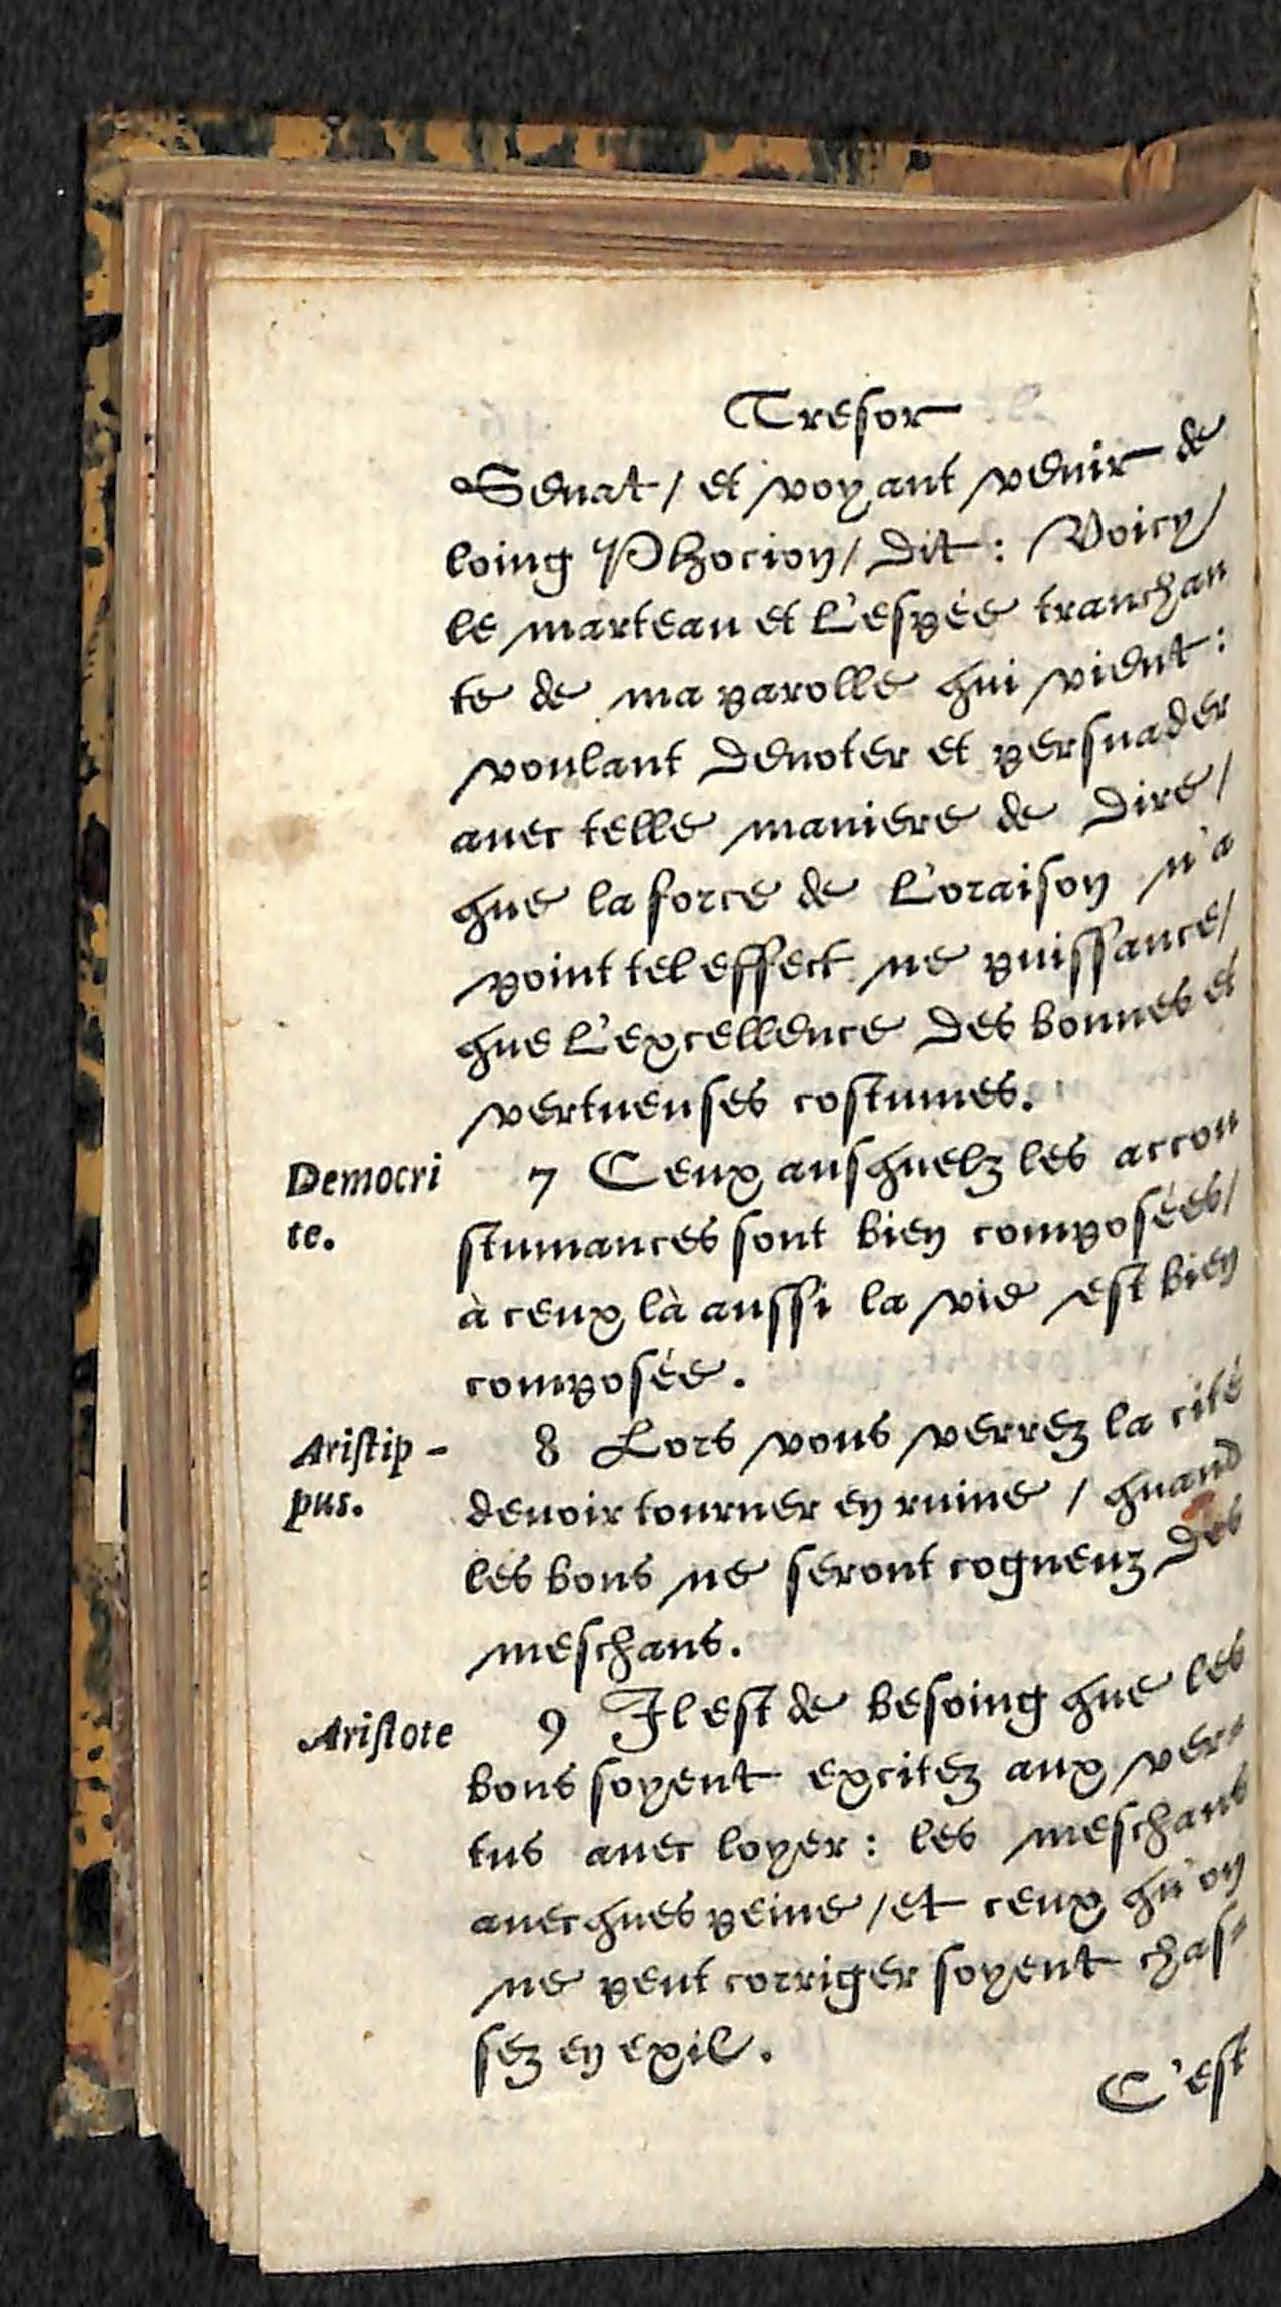 Tresor
Senat / et voyant venir de
loing Phocion / dit : Voicy /
le marteau et l'espée tranchan
te de ma parolle qui vient :
voulant denoter et persuader
auec telle maniere de dire /
que la force de l'oraison n'a
point tel effect ne puissance /
que l'excellence des bonnes et
vertueuses costumes.
Democri
te.
7 Ceux ausquelz les accou
stumances sont bien composées /
à ceux là aussi la vie est bien
composée.
Aristip-
pus.
8 Lors vous verrez la cité
deuoir tourner en ruine / quand
les bons ne seront cogneuz des
meschans.
Aristote
9 Il est de besoing que les
bons soyent excitez aux ver=
tus auec loyer : les meschans
auecques peine / et ceux qu'on
ne peut corriger soyent chas=
sez en exil.
C'est